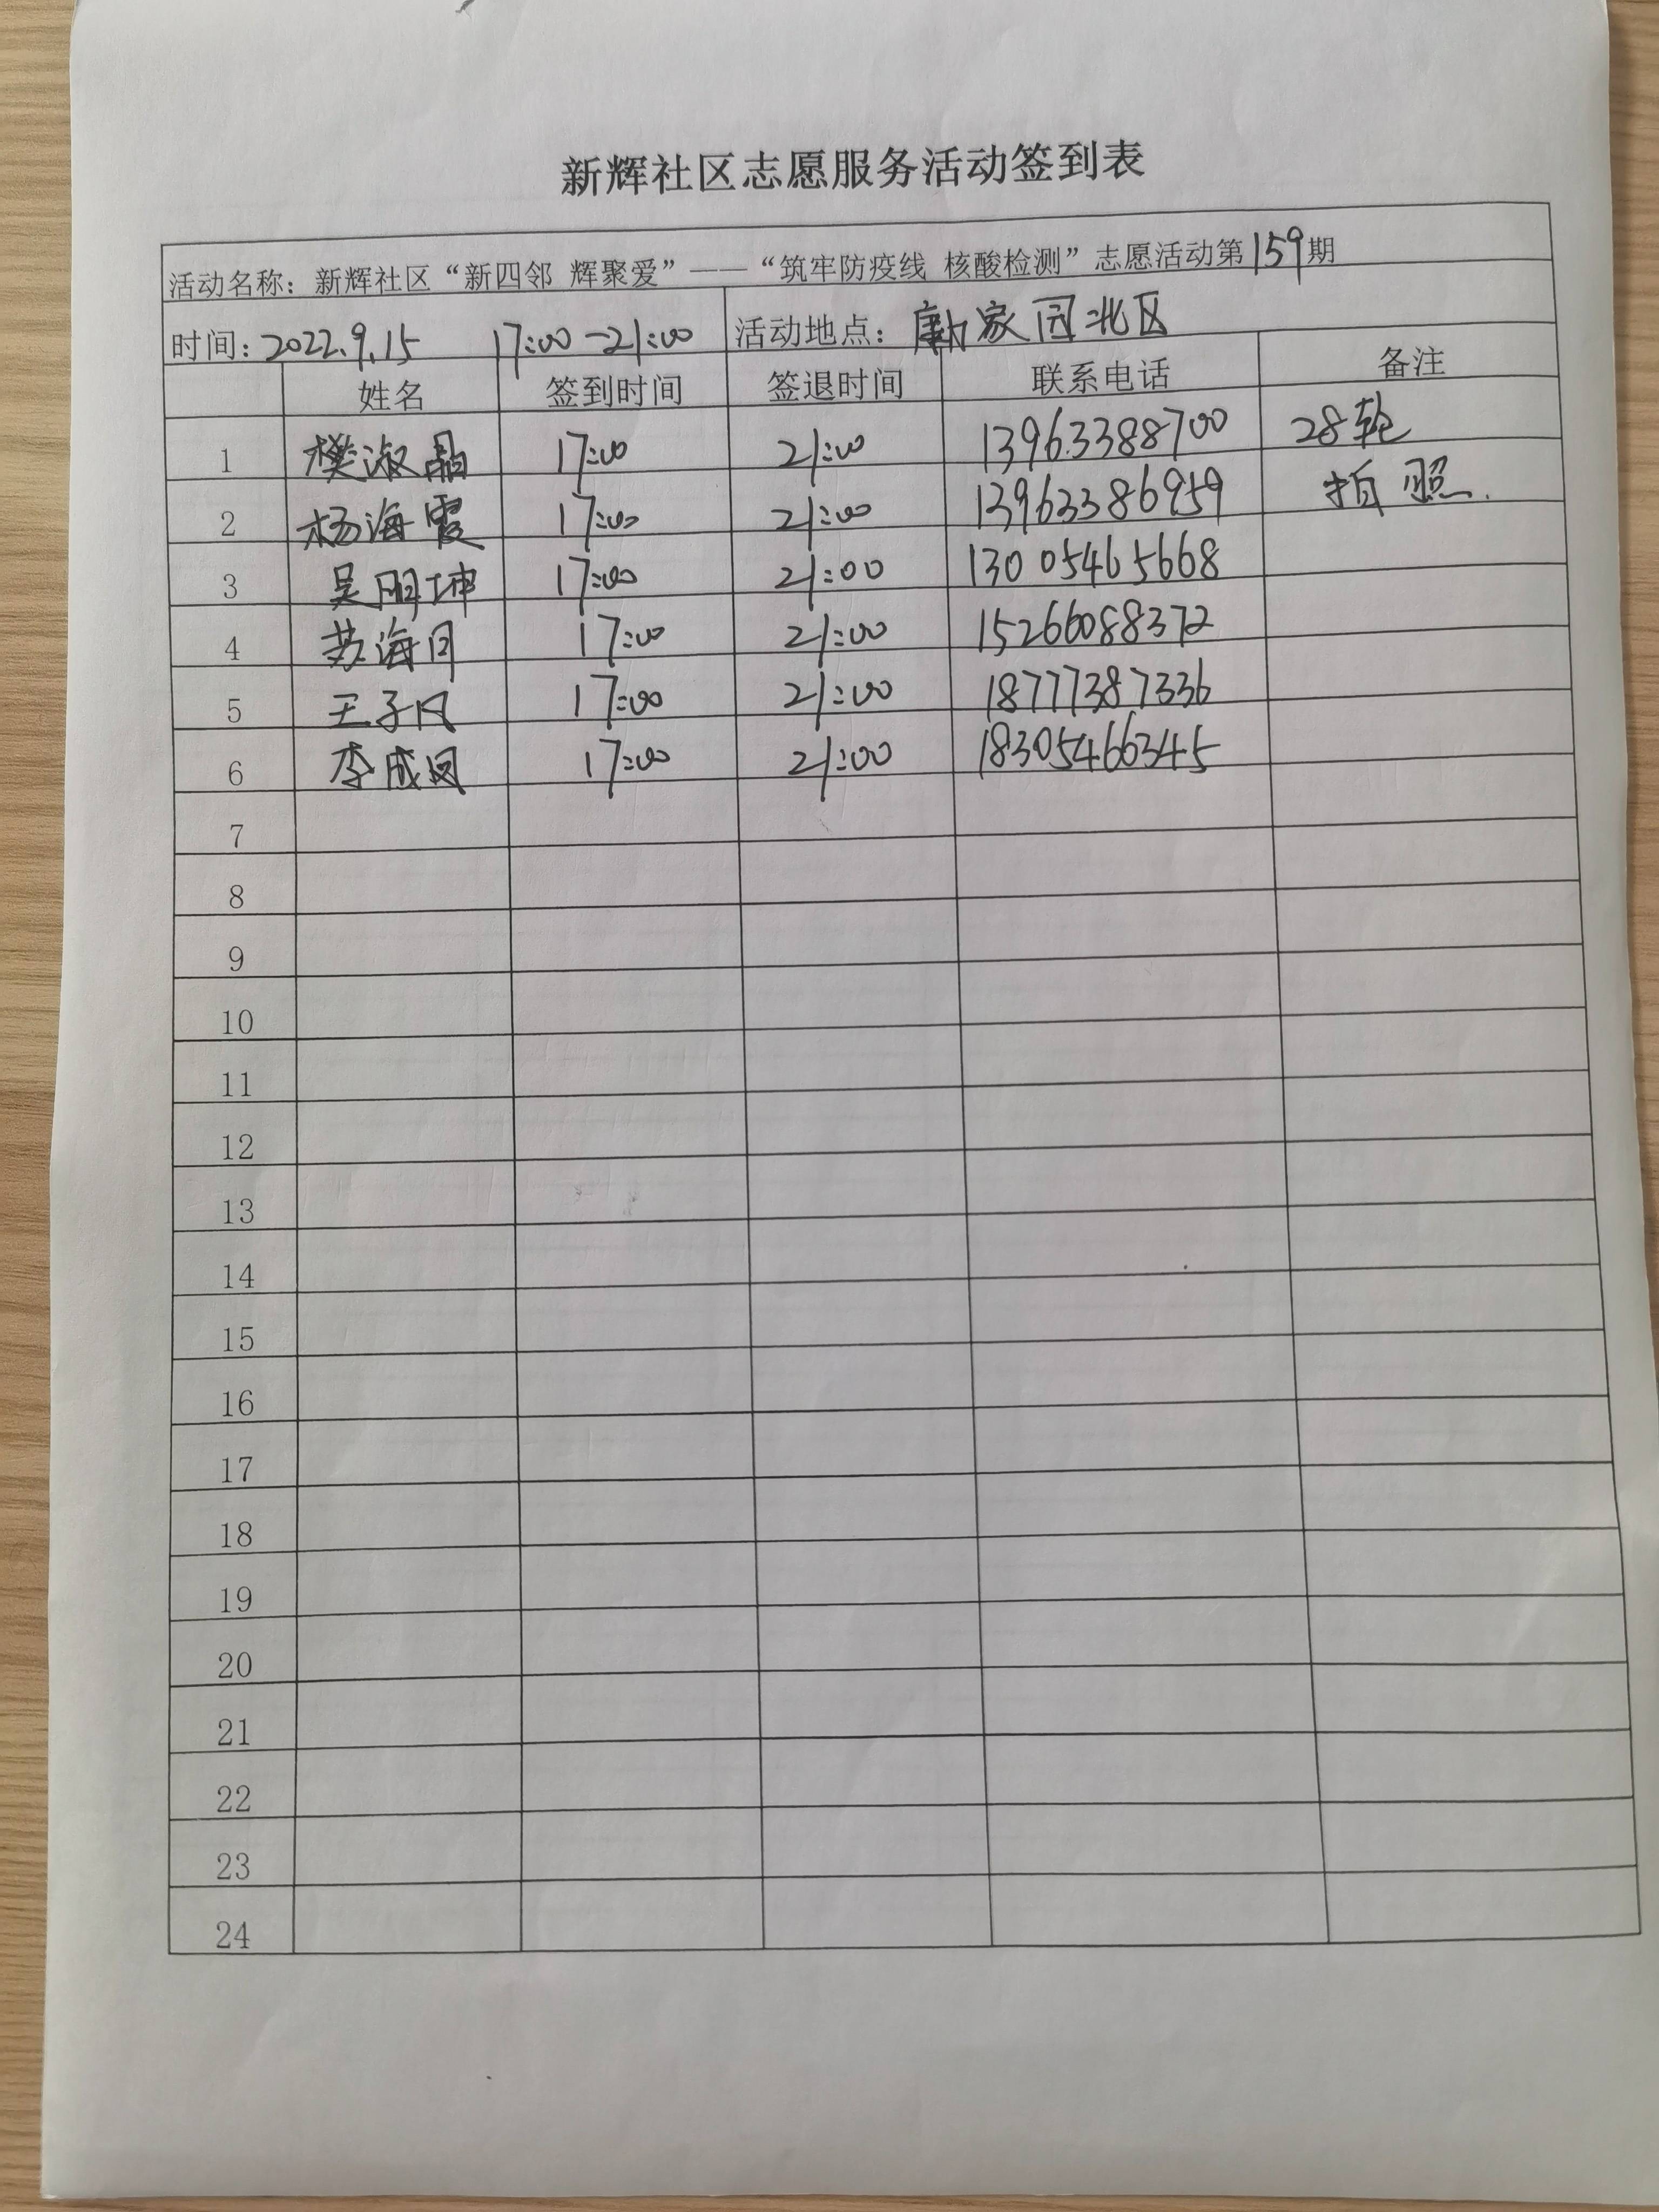 新辉社区志愿服务活动签到表
活动名称：新辉社区“新四邻 辉聚爱”——“筑牢防疫线 核酸检测”志愿活动第159期
时间：2022.9.15 17:00-21:00 活动地点：家园北区
姓名 签到时间 签退时间 联系电话 备注
1 樊淑晶 17:00 21:00 13963388700 28轮
2 杨海霞 17:00 21:00 13963386959 拍照.
3 吴丽坤 17:00 21:00 13005465668
4 苏海月 17:00 21:00 15266088372
5 王子凤 17:00 21:00 18777387336
6 李成凤 17:00 21:00 18305466345
7
8
9
10
11
12
13
14
15
16
17
18
19
20
21
22
23
24